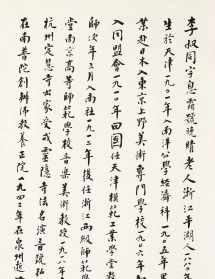 李叔同字息霜號晚晴老人浙江平湖一八八
生於天津一九〇一年入南洋公學經濟科一九〇五年
業赴日本入東京上野美術專門學校一九〇六年
入同盟會一九一〇年回國任天津模範工業學堂
師次年三月入南社一九一二年後任浙江兩級師範
堂南京高等師範學校音樂美術教授一九一八年
杭州定慧寺出家受戒靈隱寺法名演音號弘
在南普陀創辦佛教養正院一九四二年在泉州逝